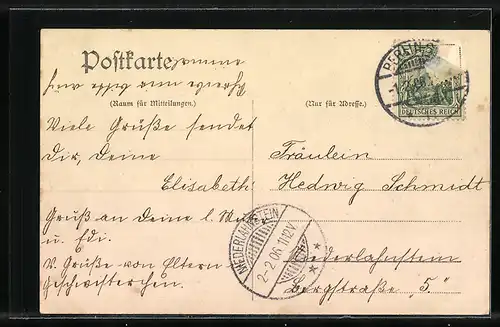 Postkarte
(Raum für Mitteilungen.)
(Nur für Adresse.)
BERLIN
DEUTSCHES REICH
Viele Grüße sendet
Dir, Deine
Elisabeth
Gruß an Deine l.
u. Edi.
V. Grüße von Eltern
Geschwisterchen.
Fräulein
Hedwig Schmidt
Niederlahnstein
Bergstraße „5."
NIEDERLAHNSTEIN
2-2.06.11-12V.